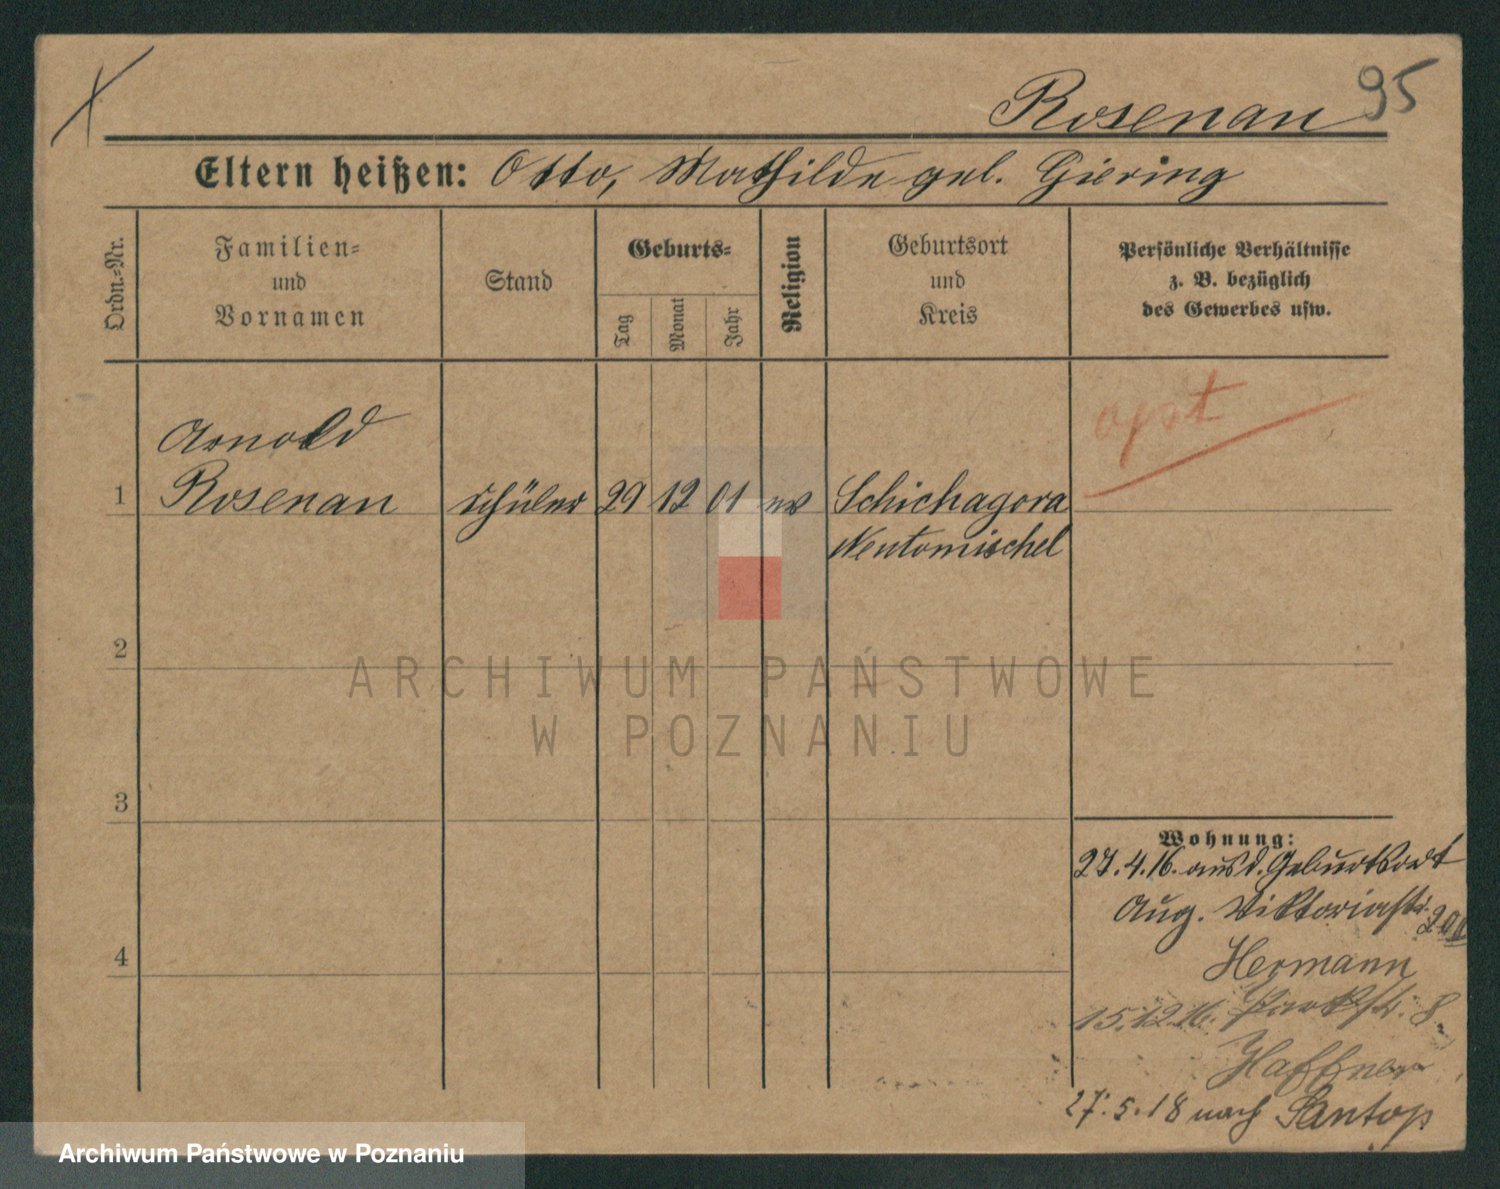 Rosenau 95
Eltern heißen: Otto, Mathilde geb. Giering
Ordn.-Nr.
Familien-
und
Vornamen
Stand
Geburts-
Tag
Monat
Jahr
Religion
Geburtsort
und
Kreis
Persönliche Verhältnisse
z. B. bezüglich
des Gewerbes usw.
Arnold
1 Rosenau Schüler 29 12 01 ev Schichagora
Neutomischel
2
3
4
Wohnung:
27.4.16. aus d. Geburtsort
Aug. Viktoriastr.
Hermann
15.12.16. Parkstr. 8
Haffner
27.5.18 nach Santop
ARCHIWUM PAŃSTWOWE
W POZNANIU
Archiwum Państwowe w Poznaniu